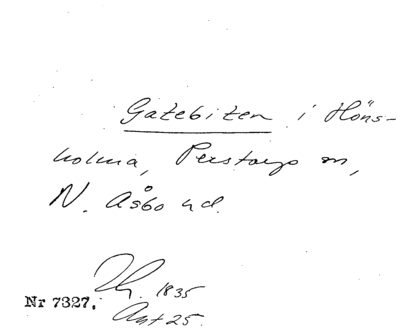 Gatebiten i Höns-
holma, Perstorps sn,
N. Åsbo hd.
Th. 1835
Nr 7327. Akt 25.